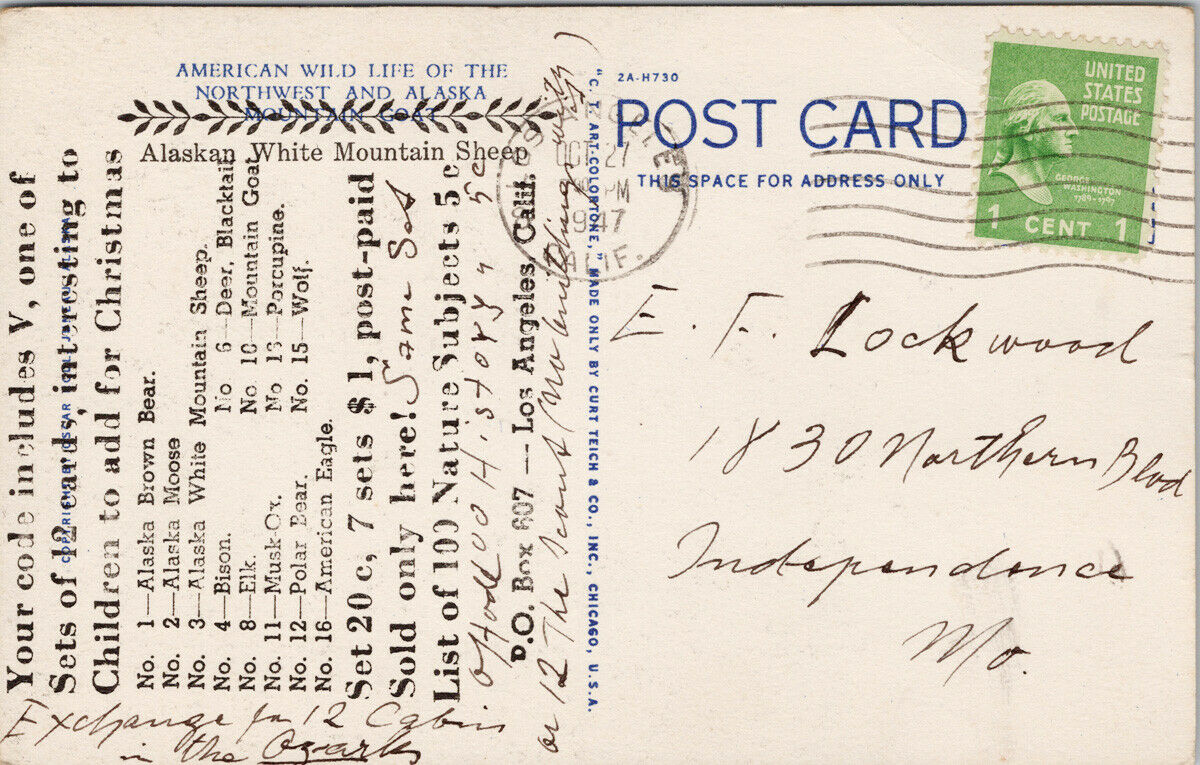 AMERICAN WILD LIFE OF THE
NORTHWEST AND ALASKA
MOUNTAIN GOAT
Alaskan White Mountain Sheep
Your code includes V, one of
Sets of 12 card, interesting to
Children to add for Christmas
No. 1—Alaska Brown Bear.
No. 2—Alaska Moose
No. 3—Alaska White Mountain Sheep.
No. 4—Bison. No 6—Deer, Blacktail
No. 8—Elk. No 10—Mountain Goat
No. 11—Musk-Ox. No 13—Porcupine.
No. 12—Polar Bear. No. 15—Wolf.
No. 16—American Eagle.
Set 20 c, 7 sets $ 1, post-paid
Sold only here! Same Set
List of 100 Nature Subjects 5 c
of Hod 100 History 4 5c
P.O. Box 607 --- Los Angeles, Calif.
or 12 The Scout (No Antlings
Exchange for 12 Cabin
in the Ozarks
COPYRIGHT BY OSCAR
"C. T. ART-COLORTONE," MADE ONLY BY CURT TEICH & CO., INC., CHICAGO, U.S.A.
2A-H730
POST CARD
THIS SPACE FOR ADDRESS ONLY
LOS ANGELES
OCT 27
PM
1947
CALIF.
UNITED
STATES
POSTAGE
GEORGE
WASHINGTON
1789-1797
1 CENT 1
E. F. Lockwood
1830 Northern Blvd
Independence
Mo.